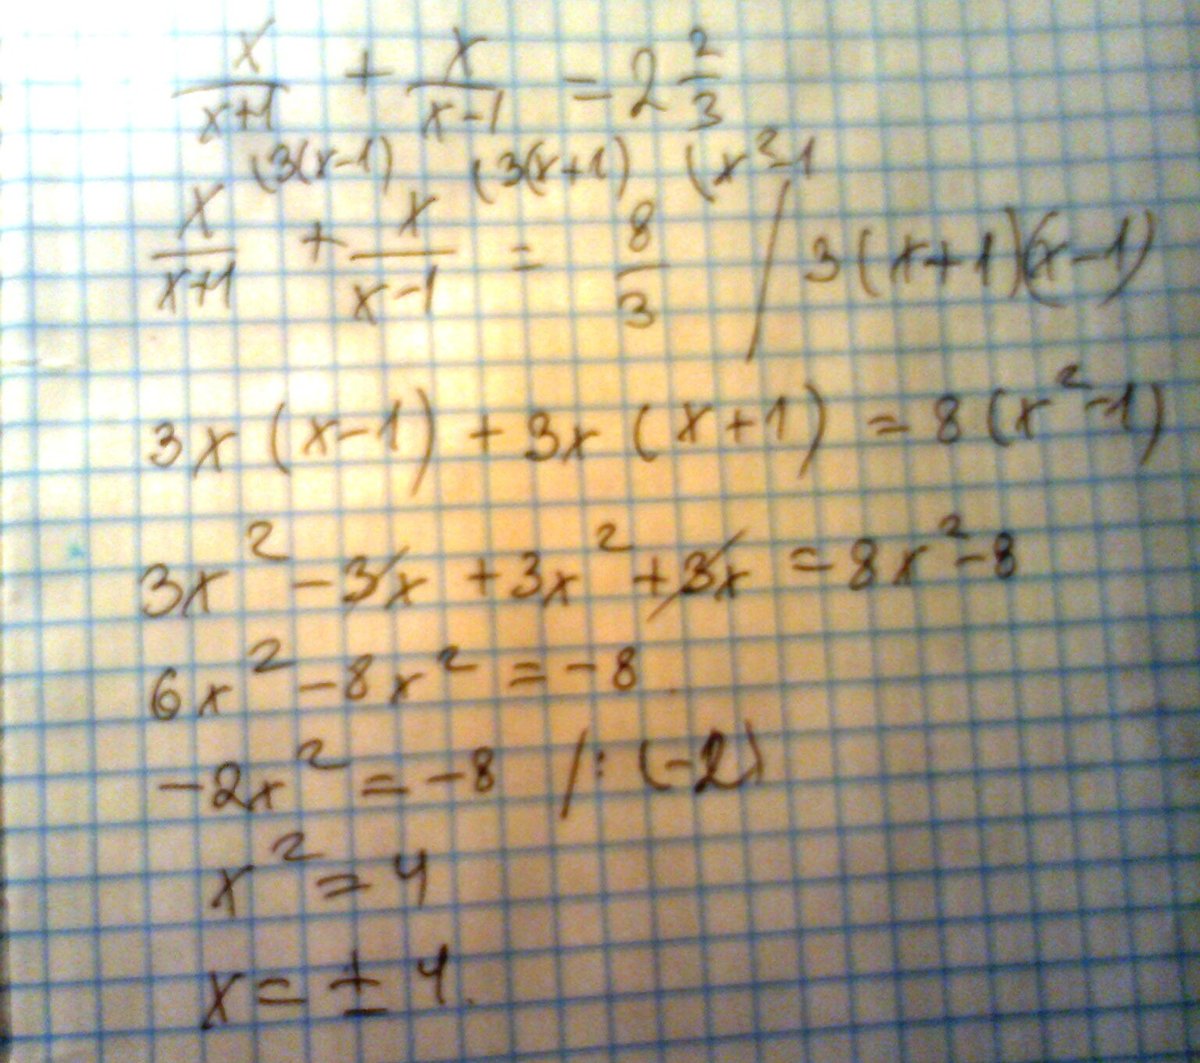 x/(x+1) + x/(x-1) = 2 2/3
(3(x-1) (3(x+1) (x²-1
x/(x+1) + x/(x-1) = 8/3 / 3(x+1)(x-1)
3x(x-1) + 3x(x+1) = 8(x²-1)
3x² - 3x + 3x² + 3x = 8x² - 8
6x² - 8x² = -8.
-2x² = -8 /:(-2)
x² = 4
x = ± 4.